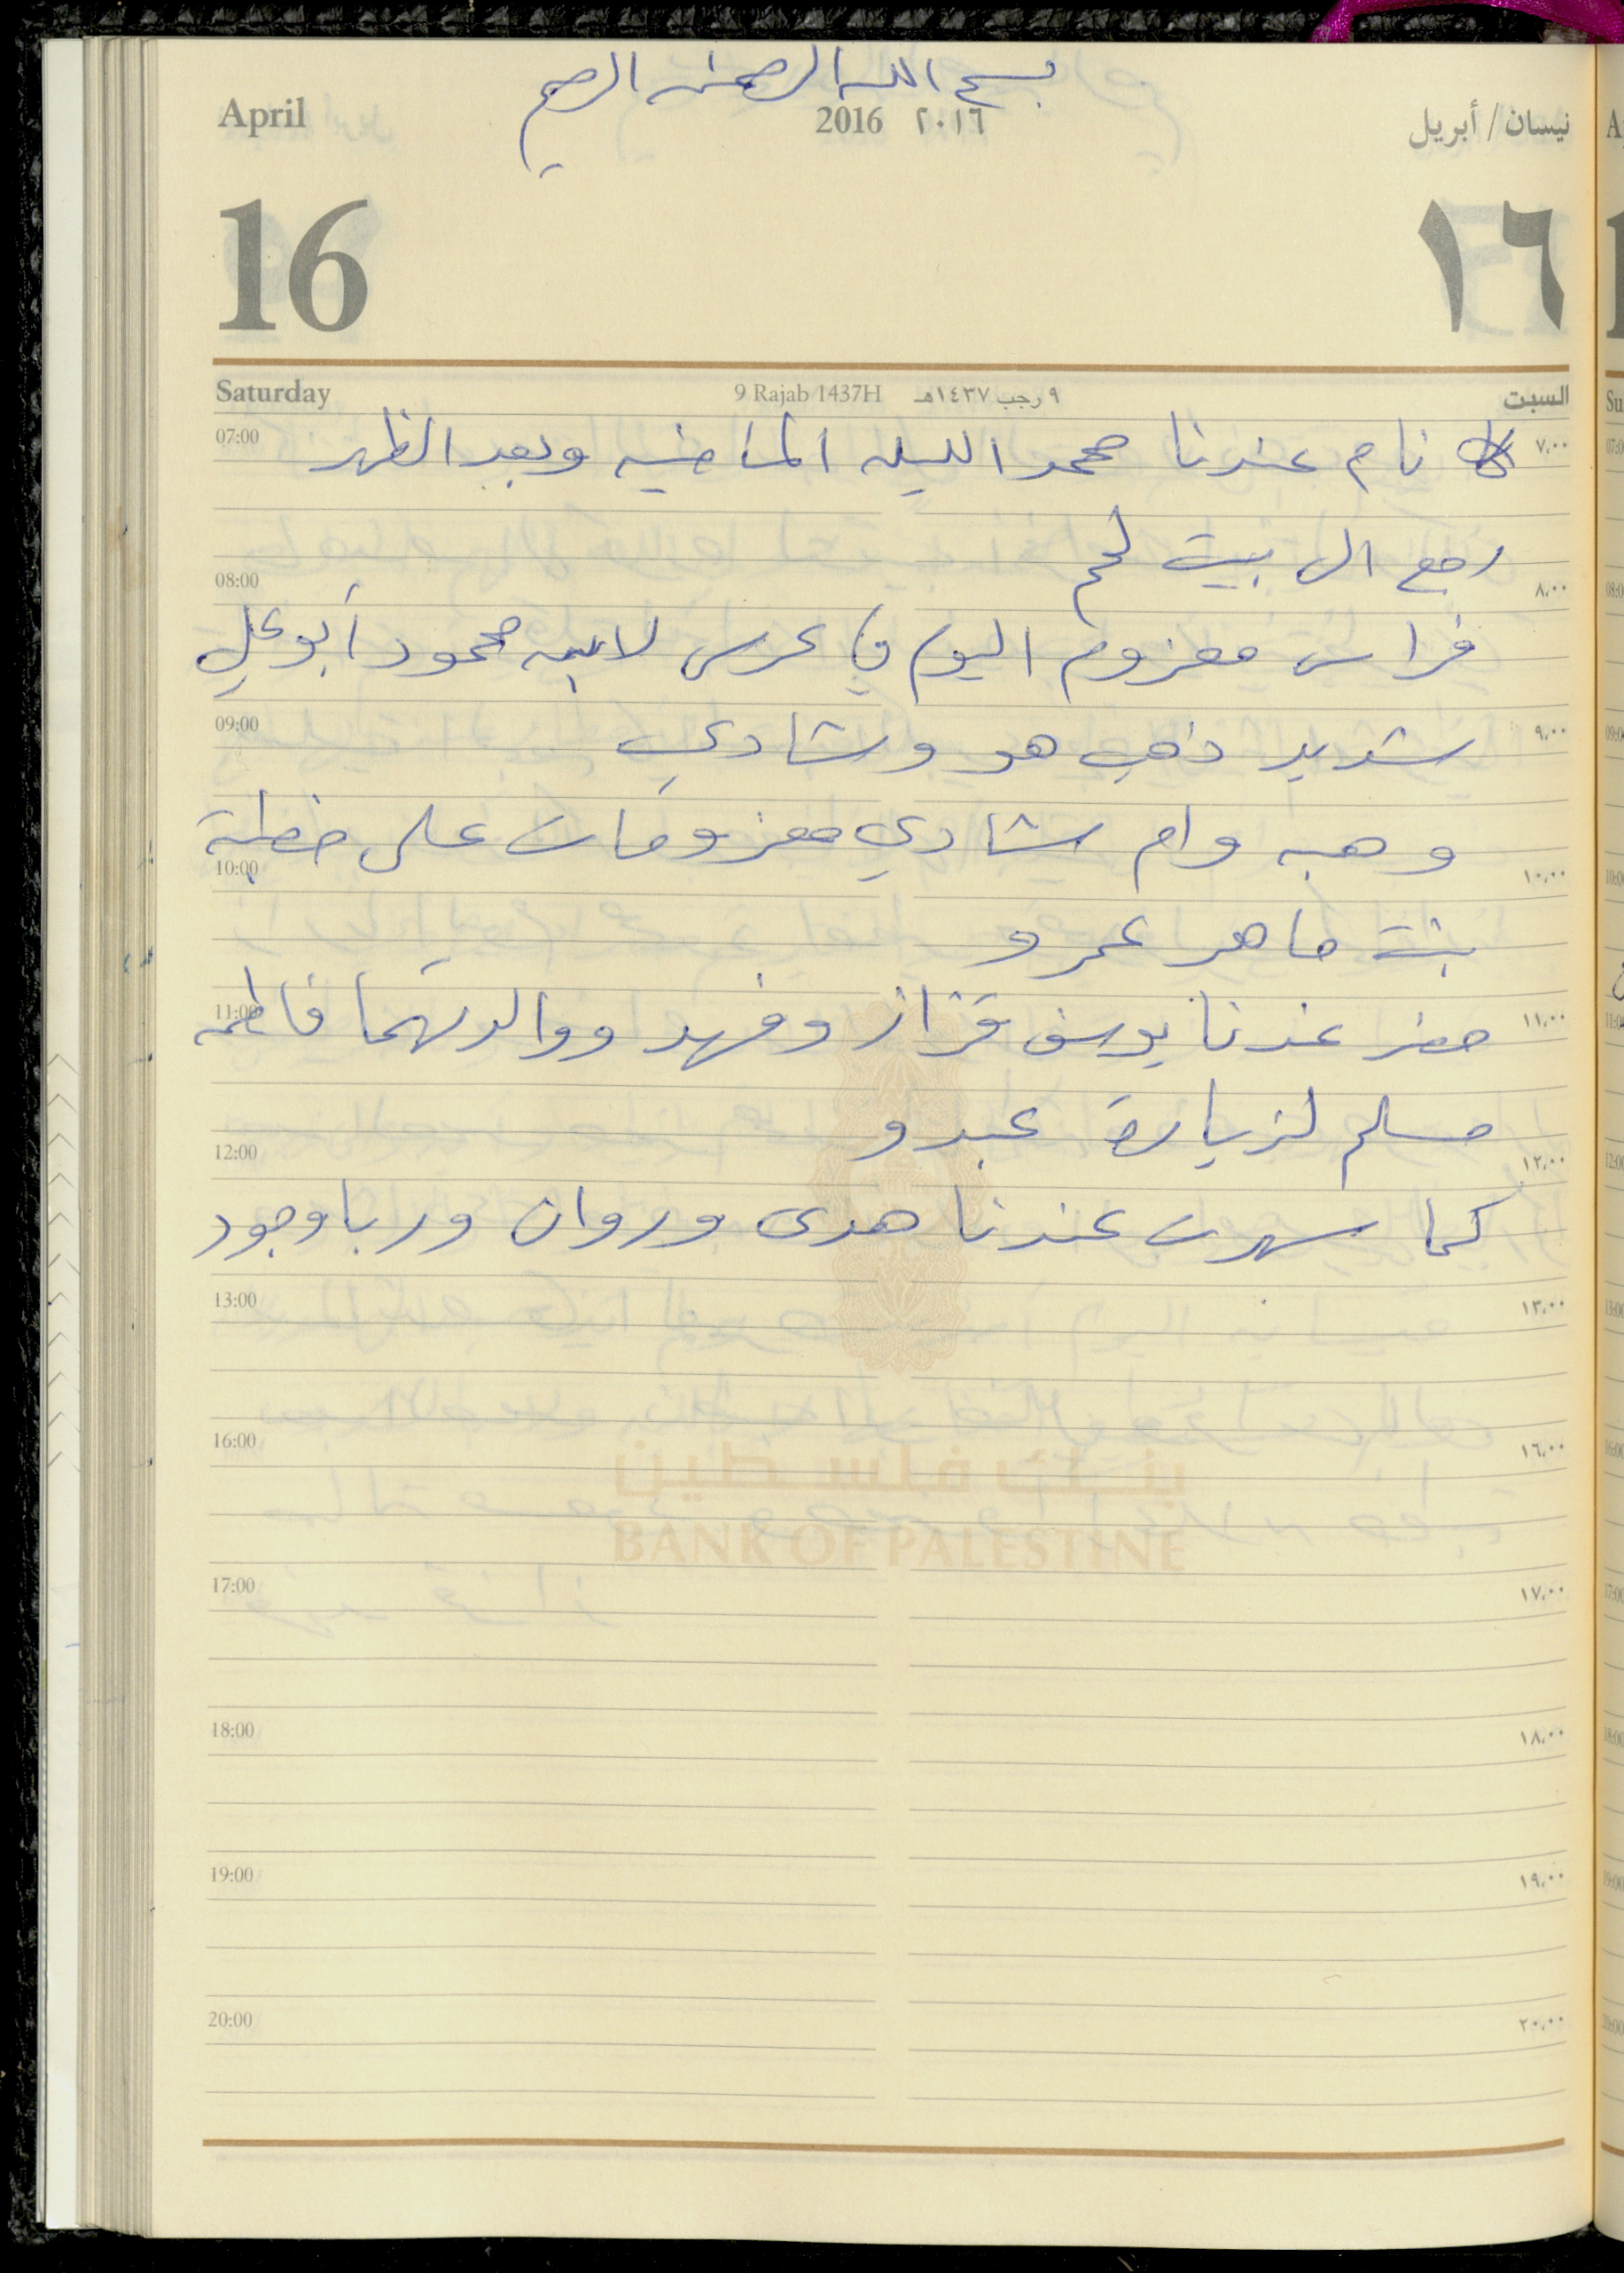 بسم الله الرحمن الرحيم
April 2016 ٢٠١٦ نيسان / أبريل
16 ١٦
Saturday 9 Rajab 1437H ٩ رجب ١٤٣٧هـ السبت
07:00 نام عندنا محمد الليله الماضيه وبعد الظهر ٧،٠٠
رجع الى بيت لحم
08:00 ٨،٠٠
فراس معزوم اليوم في عرس لابنه محمود أبو علي
09:00 شديد ذهب هو وشادي ٩،٠٠
وهبه وام شادي معزومات على خطبة
10:00 ١٠،٠٠
بنت ماهر عمرو
11:00 حضر عندنا يوسف قزاز وفهد ووالدتهما فاطمه ١١،٠٠
مسلم لزيارة عبدو
12:00 ١٢،٠٠
كما سهرت عندنا هدى وروان وربا وجود
13:00 ١٣،٠٠
16:00 ١٦،٠٠
بنك فلسطين
BANK OF PALESTINE
17:00 ١٧،٠٠
18:00 ١٨،٠٠
19:00 ١٩،٠٠
20:00 ٢٠،٠٠